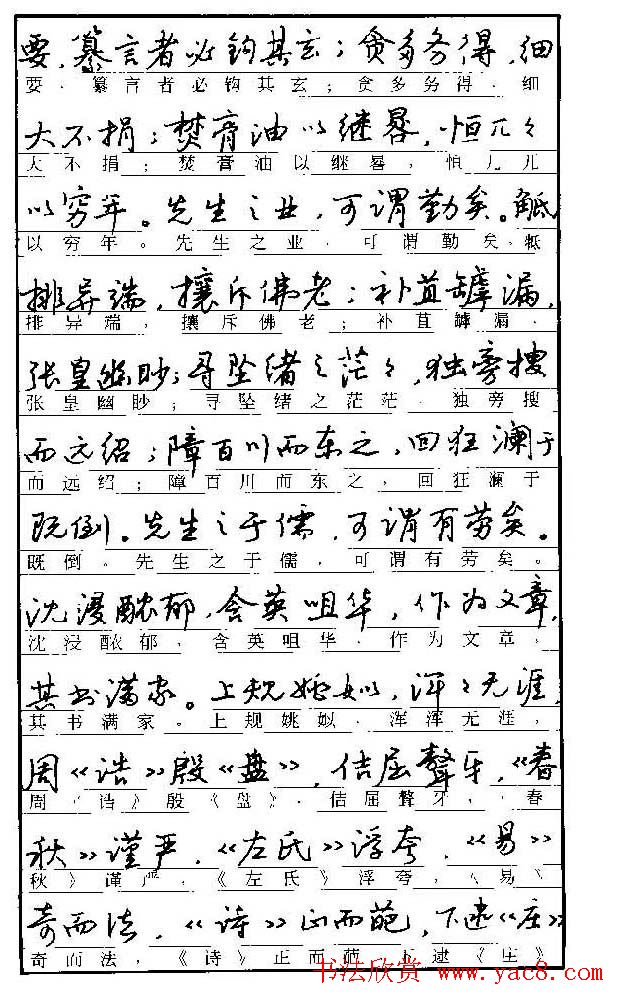 要，纂言者必钩其玄；贪多务得，细
要，纂言者必钩其玄；贪多务得，细
大不捐；焚膏油以继晷，恒兀々
大不捐；焚膏油以继晷，恒兀兀
以穷年。先生之业，可谓勤矣。觝
以穷年。先生之业，可谓勤矣。牴
排异端，攘斥佛老；补苴罅漏，
排异端，攘斥佛老；补苴罅漏，
张皇幽眇；寻坠绪之茫々，独旁搜
张皇幽眇；寻坠绪之茫茫，独旁搜
而远绍；障百川而东之，回狂澜于
而远绍；障百川而东之，回狂澜于
既倒。先生之于儒，可谓有劳矣。
既倒。先生之于儒，可谓有劳矣。
沈浸醲郁，含英咀华，作为文章，
沈浸醲郁，含英咀华，作为文章，
其书满家。上规姚姒，浑々无涯，
其书满家。上规姚姒，浑浑无涯，
周《诰》殷《盘》，佶屈聱牙，《春
周《诰》殷《盘》，佶屈聱牙，《春
秋》谨严，《左氏》浮夸，《易》
秋》谨严，《左氏》浮夸，《易》
奇而法，《诗》正而葩，下逮《庄》
奇而法，《诗》正而葩，下逮《庄》
书法欣赏 www.yac8.com